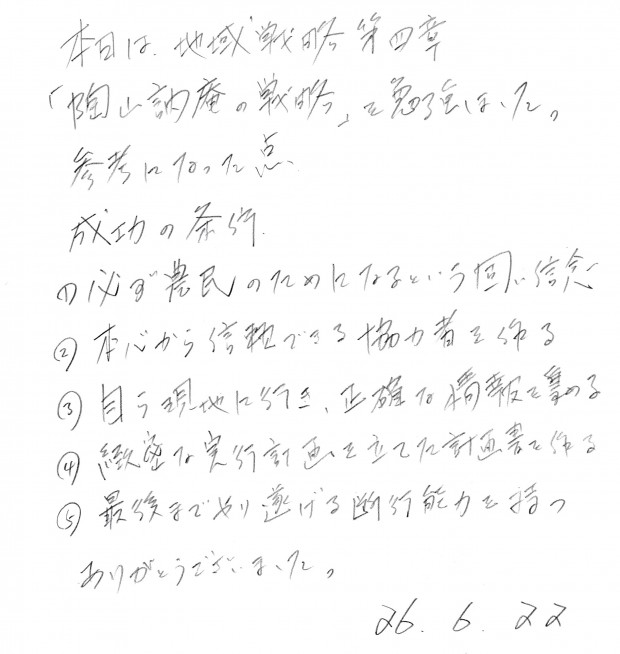 本日は、地域戦略第四章
「陶山訥庵の戦略」を勉強しました。
参考になった点
成功の条件
(1)必ず農民のためになるという固い信念
② 本心から信頼できる協力者を作る
③ 自ら現地に行き、正確な情報を集める
④ 緻密な実行計画を立てた計画書を作る
⑤ 最後までやり遂げる断行能力を持つ
ありがとうございました。
26. 6. 22